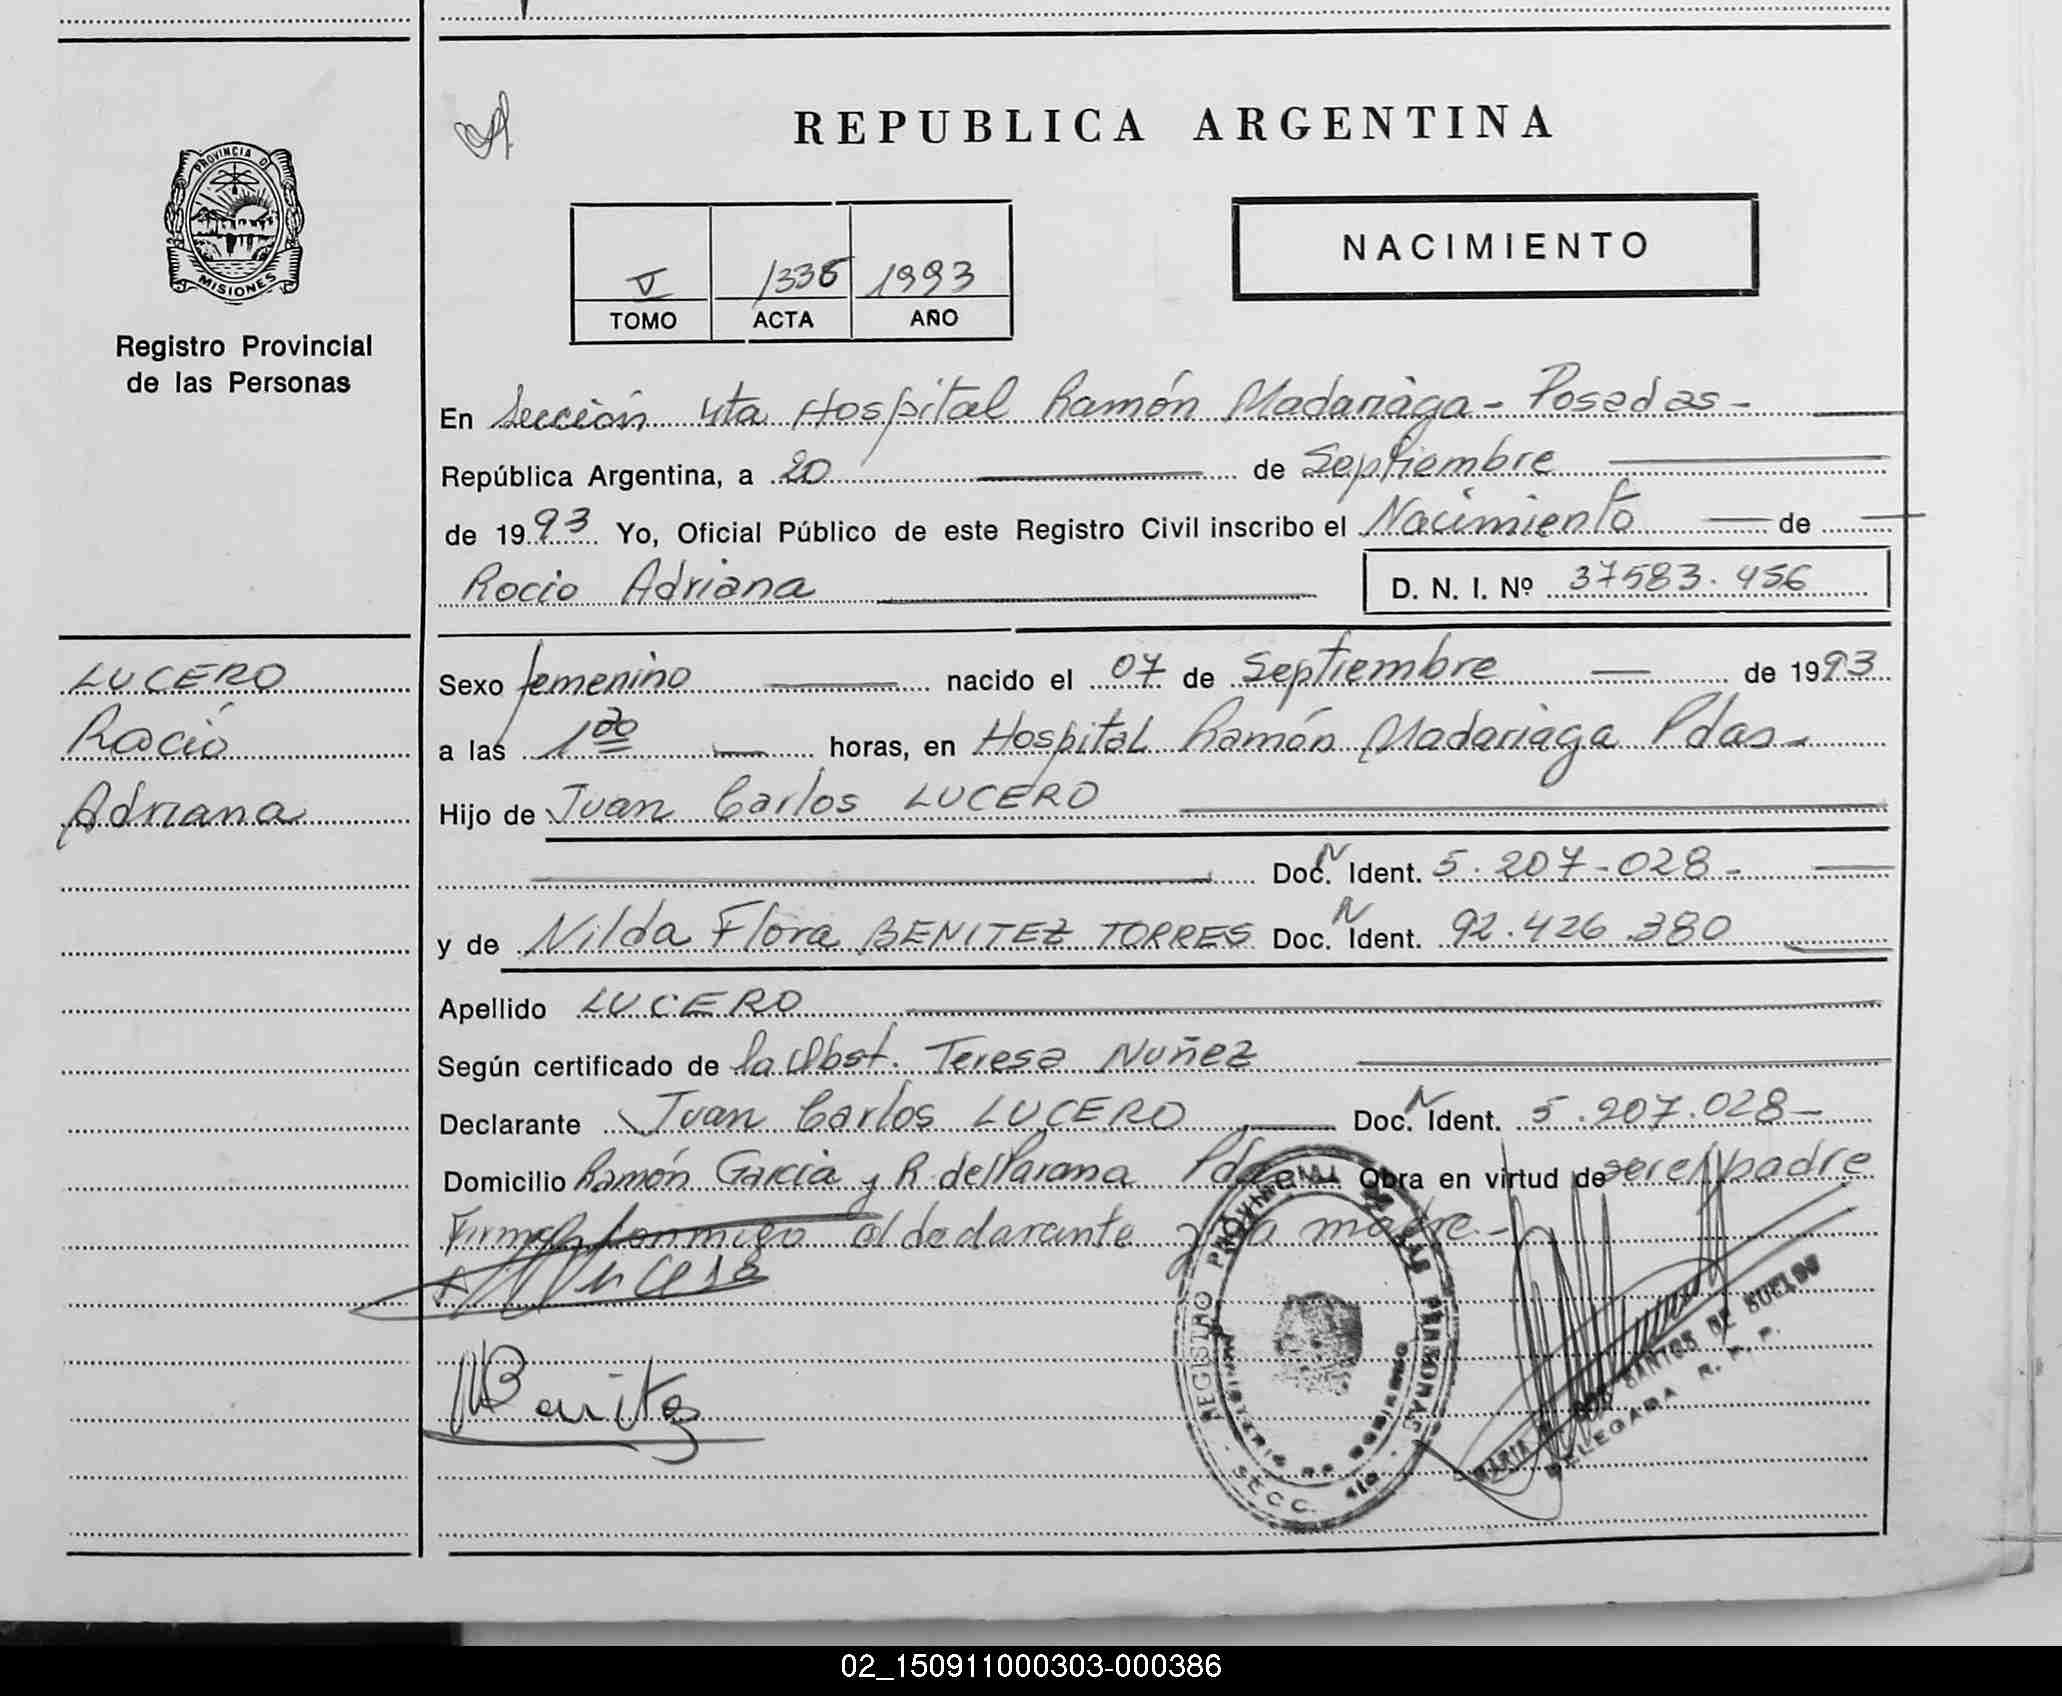 REPUBLICA ARGENTINA
PROVINCIA DE
MISIONES
Registro Provincial
de las Personas
NACIMIENTO
V 1336 1993
TOMO ACTA AÑO
En Sección 4ta Hospital Ramón Madariaga - Posadas -
República Argentina, a 20 de Septiembre
de 1993 Yo, Oficial Público de este Registro Civil inscribo el Nacimiento de
Rocio Adriana D. N. I. Nº 37583.456
LUCERO
Rocío
Adriana
Sexo femenino nacido el 07 de Septiembre de 1993
a las 1 horas, en Hospital Ramón Madariaga Pdas -
Hijo de Juan Carlos LUCERO
Doc. N Ident. 5.207-028-
y de Nilda Flora BENITEZ TORRES Doc. N Ident. 92.426.380
Apellido LUCERO
Según certificado de la Obst. Teresa Nuñez
Declarante Juan Carlos LUCERO Doc. N Ident. 5.207.028-
Domicilio Ramón Garcia y R. del Parana Pdas Obra en virtud de ser el padre
Firman conmigo el declarante y la madre.-
Lucero
NBenitez
REGISTRO PROVINCIAL DE LAS PERSONAS
MINISTERIO DE GOBIERNO
SECC.
DOS SANTOS DE SUELDO
DELEGADA R. P. P.
02_150911000303-000386